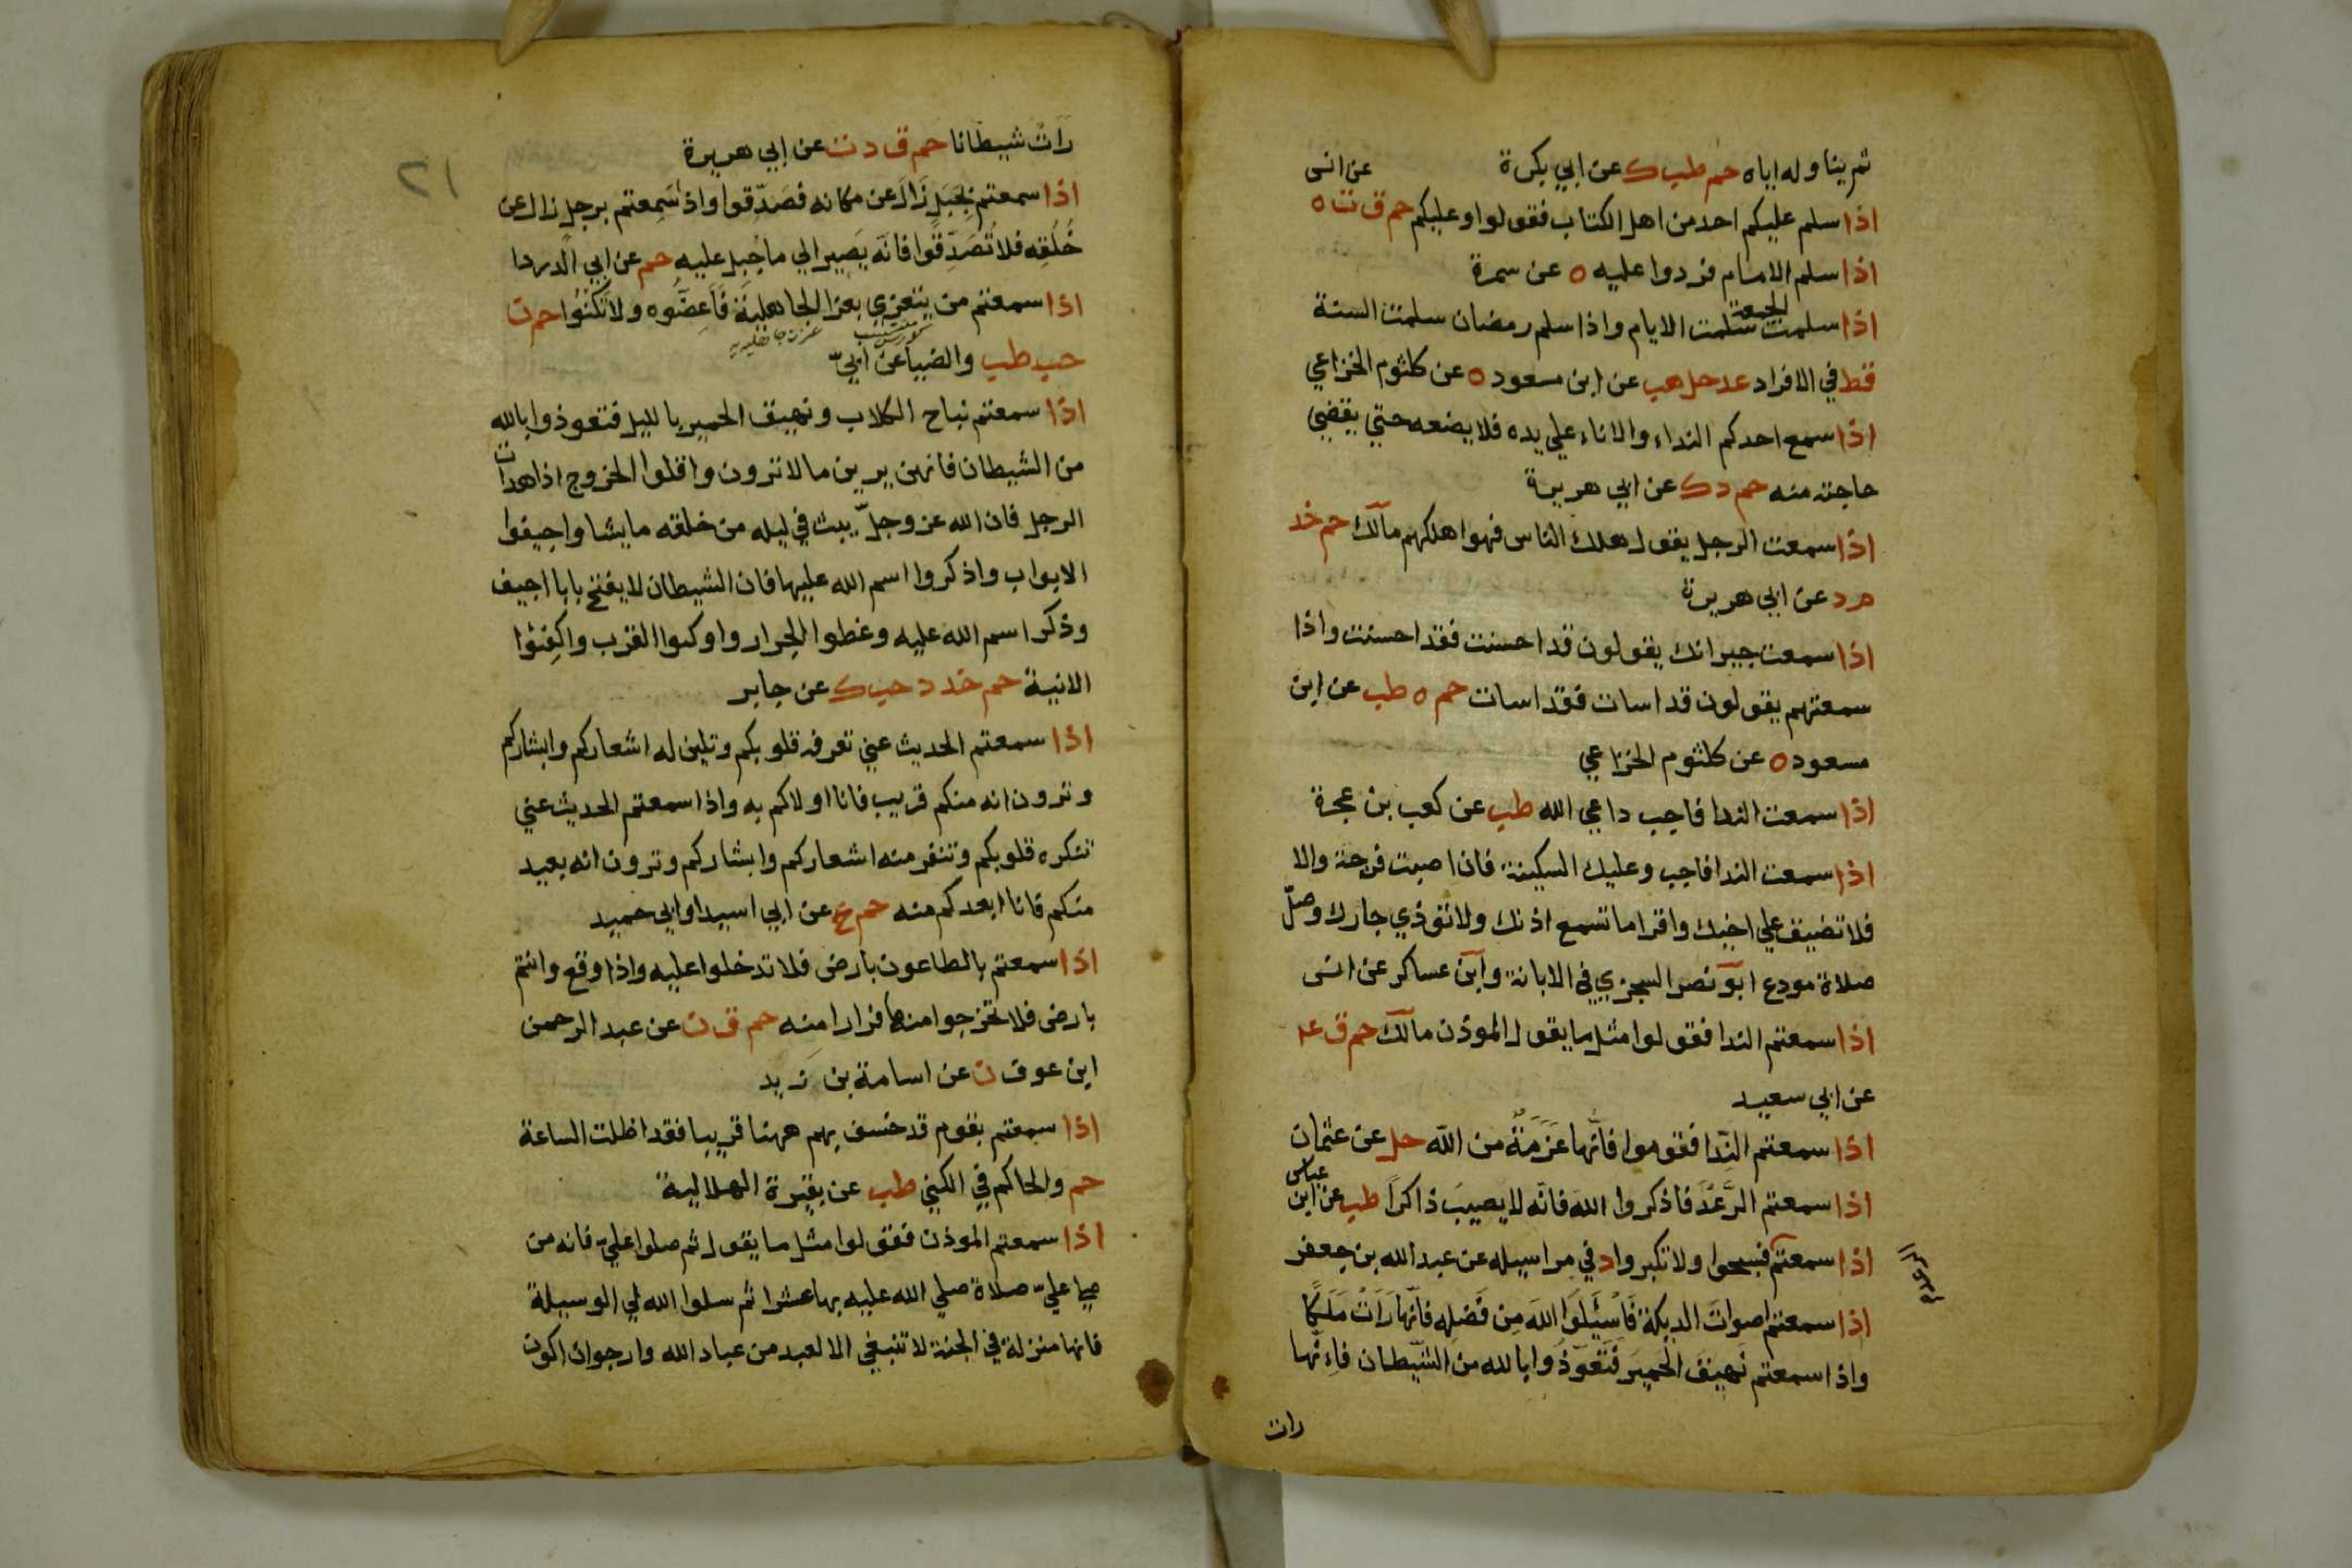 ثم يناوله اياه حم طب ك عن ابي بكرة
اذا سلم عليكم احد من اهل الكتاب فقولوا وعليكم حم ق ت ه عن انس
اذا سلم الامام فردوا عليه ه عن سمرة
اذا سلمت الجمعة سلمت الايام واذا سلم رمضان سلمت السنة
قط في الافراد عد حل هب عن ابن مسعود ه عن كلثوم الخزاعي
اذا سمع احدكم النداء والاناء على يده فلا يضعه حتي يقضي
حاجته منه حم د ك عن ابي هريرة
اذا سمعت الرجل يقول هلك الناس فهو اهلكهم مالك حم خد
م د عن ابي هريرة
اذا سمعت جيرانك يقولون قد احسنت فقد احسنت واذا
سمعتهم يقولون قد اسات فقد اسات حم ه طب عن ابن
مسعود ه عن كلثوم الخزاعي
اذا سمعت الندا فاجب داعي الله طب عن كعب بن عجرة
اذا سمعت الندا فاجب وعليك السكينة فان اصبت فرجة والا
فلا تضيق علي اخيك واقرا ما تسمع اذنك ولا توذي جارك وصلّ
صلاة مودع ابو نصر السجزي في الابانة وابن عساكر عن انس
اذا سمعتم الندا فقولوا مثل ما يقول الموذن مالك حم ق عد
عن ابي سعيد
اذا سمعتم النِّدا فقوموا فانّها عَزَمَةٌ من اللّه حل عن عثمان
اذا سمعتم الرَّعْدَ فاذكروا اللهَ فانّه لا يصيبَ ذاكرًا طب عن ابن عباس
اذا سمعتم فسبحوا ولا تكبروا د في مراسيله عن عبد الله بن جعفر
الرعد
اذا سمعتم اصوات الديكة فَاسْئَلوا اللهَ مِن فَضلِهِ فانّها رَاَتْ مَلَكًا
واذا سمعتم نَهِيقَ الحَمِيرَ فَتَعَوَّذُوا بالله من الشيّطان فاِنّها
رات
٢١
رَاَتْ شيطانا حم ق د ت عن ابي هريرة
اذا سمعتم بِجَبَلٍ زَالَ عن مكانه فصَدِّقوا واذ سَمِعتم برجل زال عن
خُلُقِه فلا تُصَدِّقُوا فانّه يَصير الي ما جُبِل عليه حم عن ابي الدردا
اذا سمعتم من يتعزي بعزا الجاهلية فَاَعِضُّوه ولا تَكْنُوا حم ت
حب طب والضيا عن ابيّ
اذا سمعتم نباح الكلاب ونهيق الحمير بالليل فتعوذوا بالله
من الشيطان فانهن يرين ما لا ترون واقلوا الخروج اذا هدات
الرجل فان الله عز وجلّ يبث في ليله من خلقه ما يشا واجيفوا
الابواب واذكروا اسم الله عليها فان الشيطان لا يفتح بابا اجيف
وذكر اسم الله عليه وغطوا الجرار واوكوا القرب واكفئوا
الانية حم خد د حب ك عن جابر
اذا سمعتم الحديث عني تعرفه قلوبكم وتلين له اشعاركم وابشاركم
وترون انه منكم قريب فانا اولاكم به واذا سمعتم الحديث عني
تنكره قلوبكم وتنفر منه اشعاركم وابشاركم وترون انه بعيد
منكم فانا ابعدكم منه حم ع عن ابي اسيد او ابي حميد
اذا سمعتم بالطاعون بارض فلا تدخلوا عليه واذا وقع وانتم
بارض فلا تخرجوا منها فرارا منه حم ق ن عن عبد الرحمن
ابن عوف ن عن اسامة بن زيد
اذا سمعتم بقوم قد خسف بهم ههنا قريبا فقد اظلت الساعة
حم والحاكم في الكني طب عن بقيرة الهلالية
اذا سمعتم الموذن فقولوا مثل ما يقول ثم صلوا عليّ فانه من
صلى عليّ صلاة صلي الله عليه بها عشرا ثم سلوا الله لي الوسيلة
فانها منزلة في الجنة لا تنبغي الا لعبد من عباد الله وارجو ان اكون